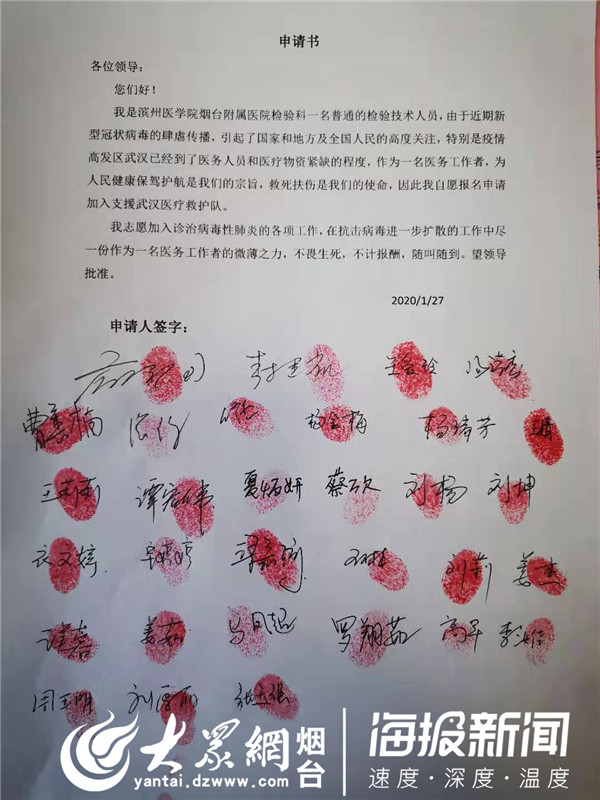 申请书
各位领导：
您们好！
我是滨州医学院烟台附属医院检验科一名普通的检验技术人员，由于近期新
型冠状病毒的肆虐传播，引起了国家和地方及全国人民的高度关注，特别是疫情
高发区武汉已经到了医务人员和医疗物资紧缺的程度，作为一名医务工作者，为
人民健康保驾护航是我们的宗旨，救死扶伤是我们的使命，因此我自愿报名申请
加入支援武汉医疗救护队。
我志愿加入诊治病毒性肺炎的各项工作，在抗击病毒进一步扩散的工作中尽
一份作为一名医务工作者的微薄之力，不畏生死，不计报酬，随叫随到。望领导
批准。
2020/1/27
申请人签字：
杨金梅 杨绮芳
王莉莉 夏炳妍 蔡欣 刘杨 刘坤
衣文婷 刘莉 姜杰
姜茹 罗翔茹 高平
大众网 烟台 海报新闻
yantai.dzwww.com 速度·深度·温度